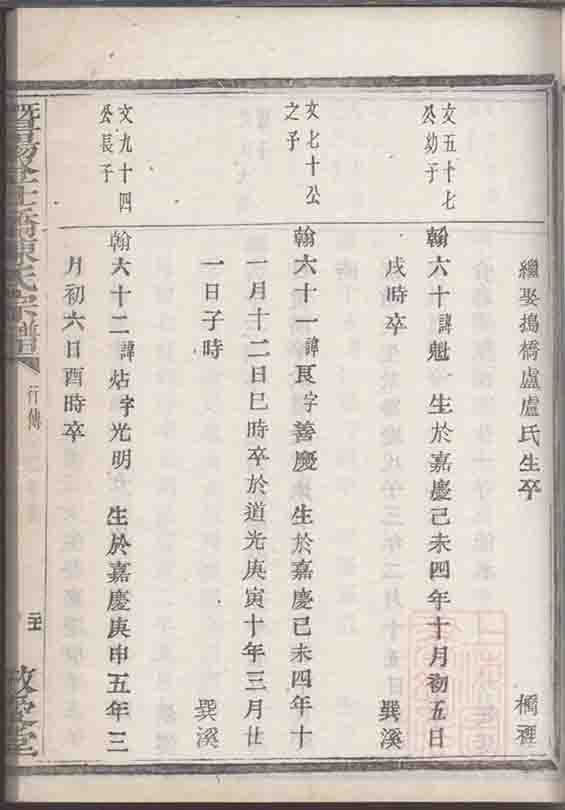 繼娶搗橋盧盧氏生卒
櫚裡
文五十七
公幼子
翰六十諱魁 生於嘉慶己未四年十月初五日
戌時卒
巽溪
文七十公
之子
翰六十一諱艮字善慶 生於嘉慶己未四年十
一月十二日巳時卒於道光庚寅十年三月廿
一日子時
巽溪
文九十四
公長子
翰六十二諱炶字光明 生於嘉慶庚申五年三
月初六日酉時卒
陳氏宗譜
行傳